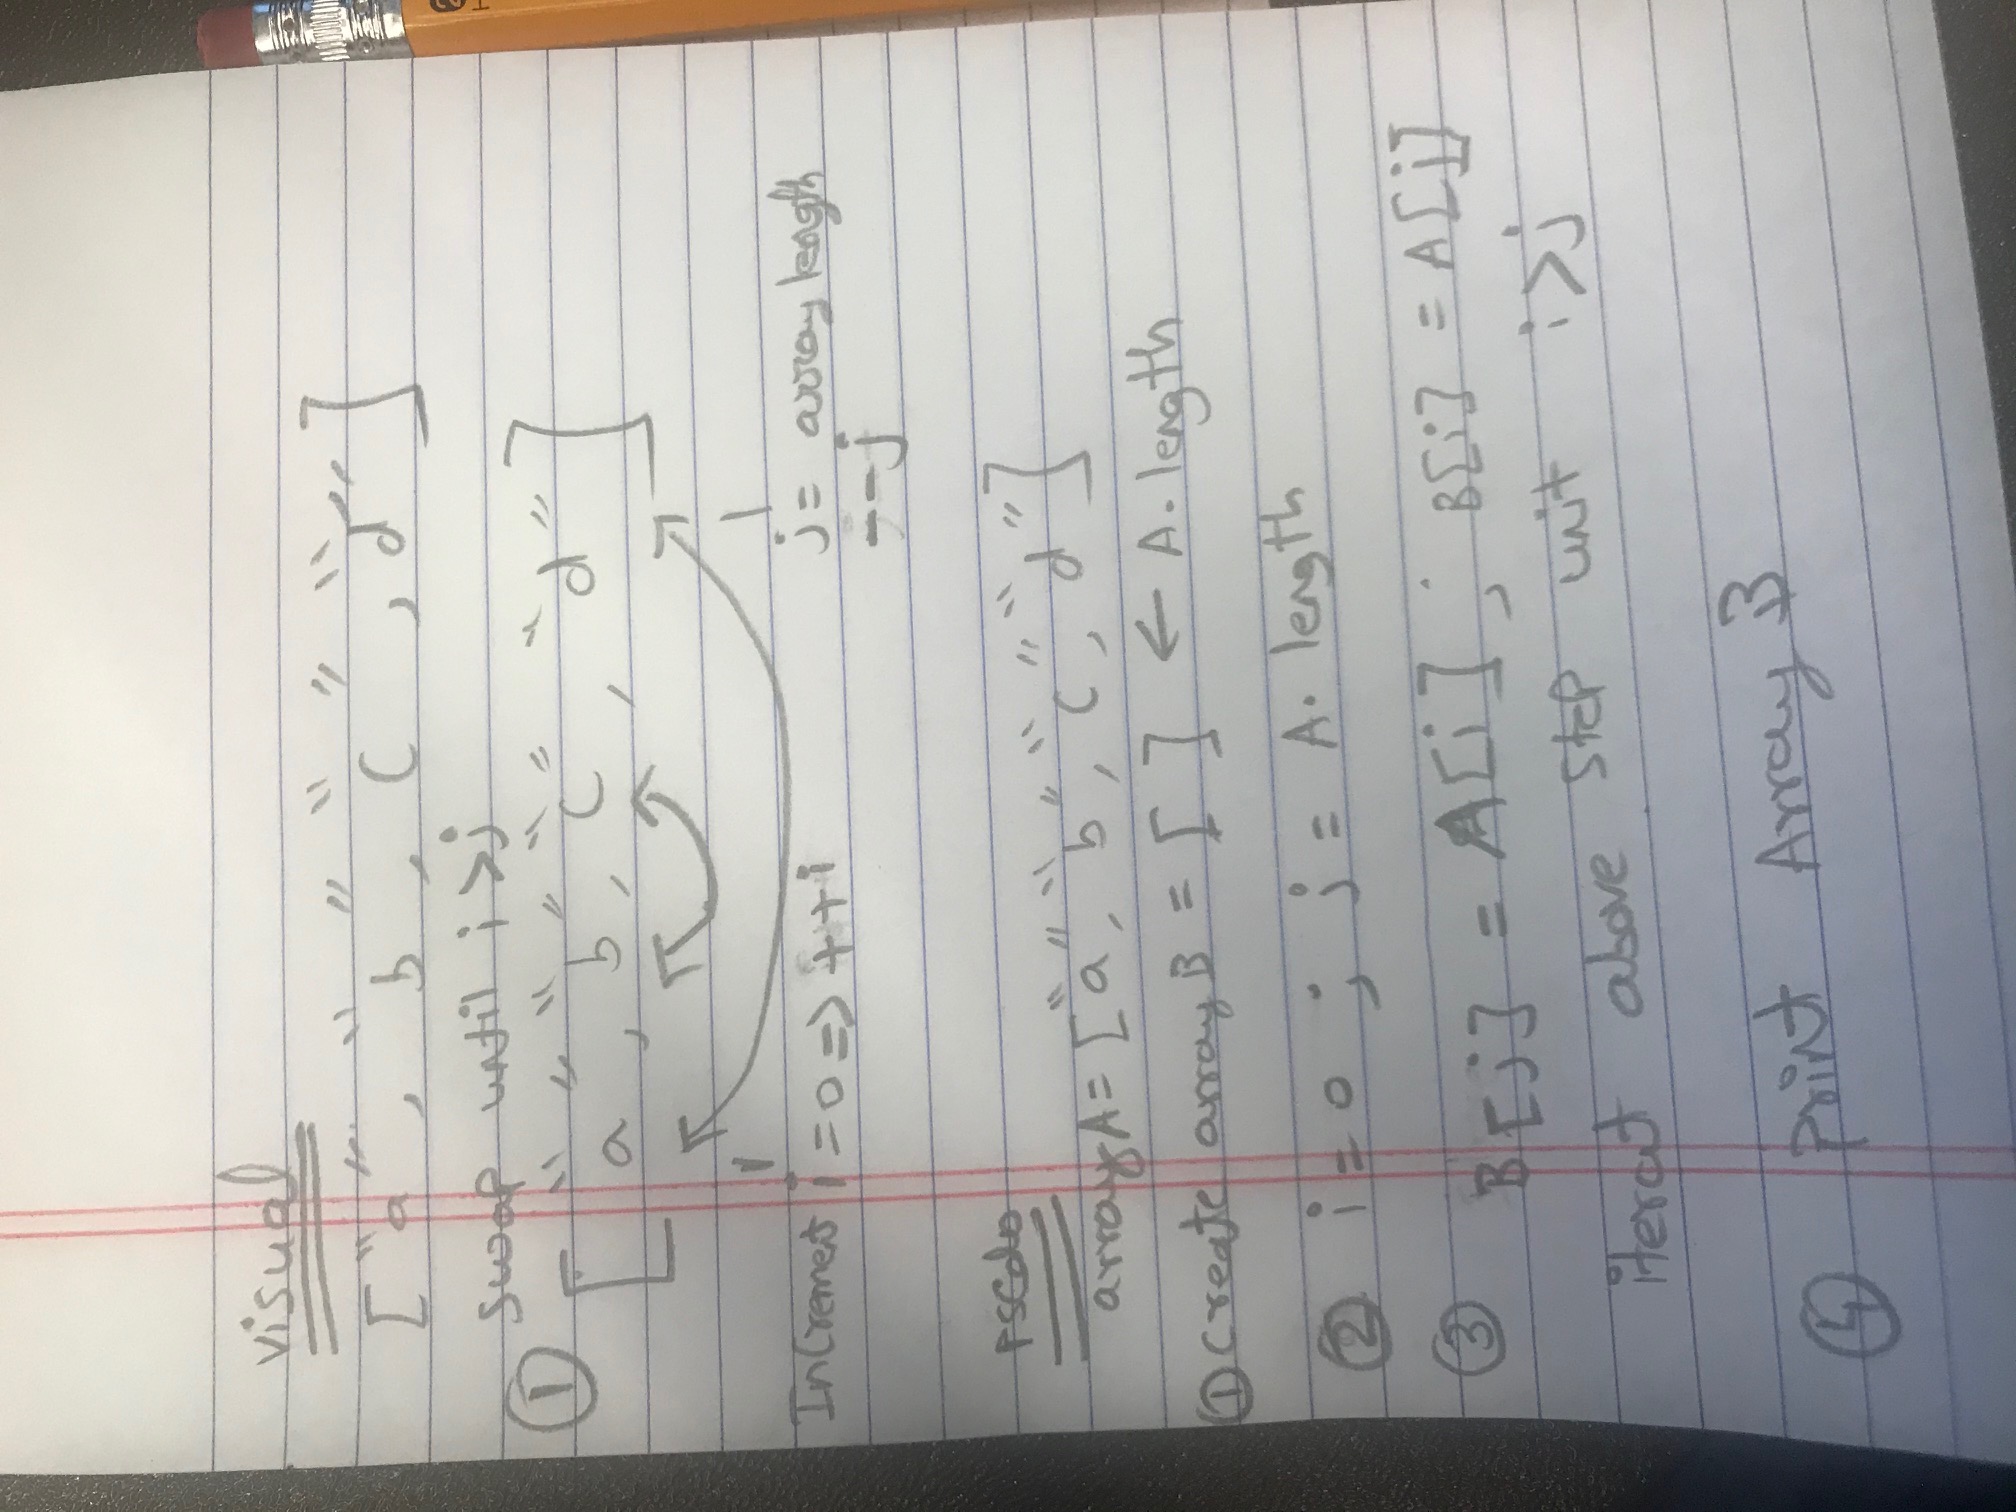 visual
["a", "b", "c", "d"]
swap until i>j
① ["a", "b", "c", "d"]
Increment i=0 => ++i
j= array length
--j
Pscdo
array A= ["a", "b", "c", "d"]
① Create array B = [ ] ← A.length
② i=0 ; j = A.length
③ B[j] = A[i] ; B[i] = A[j]
iterat above step unit i>j
④ print Array B